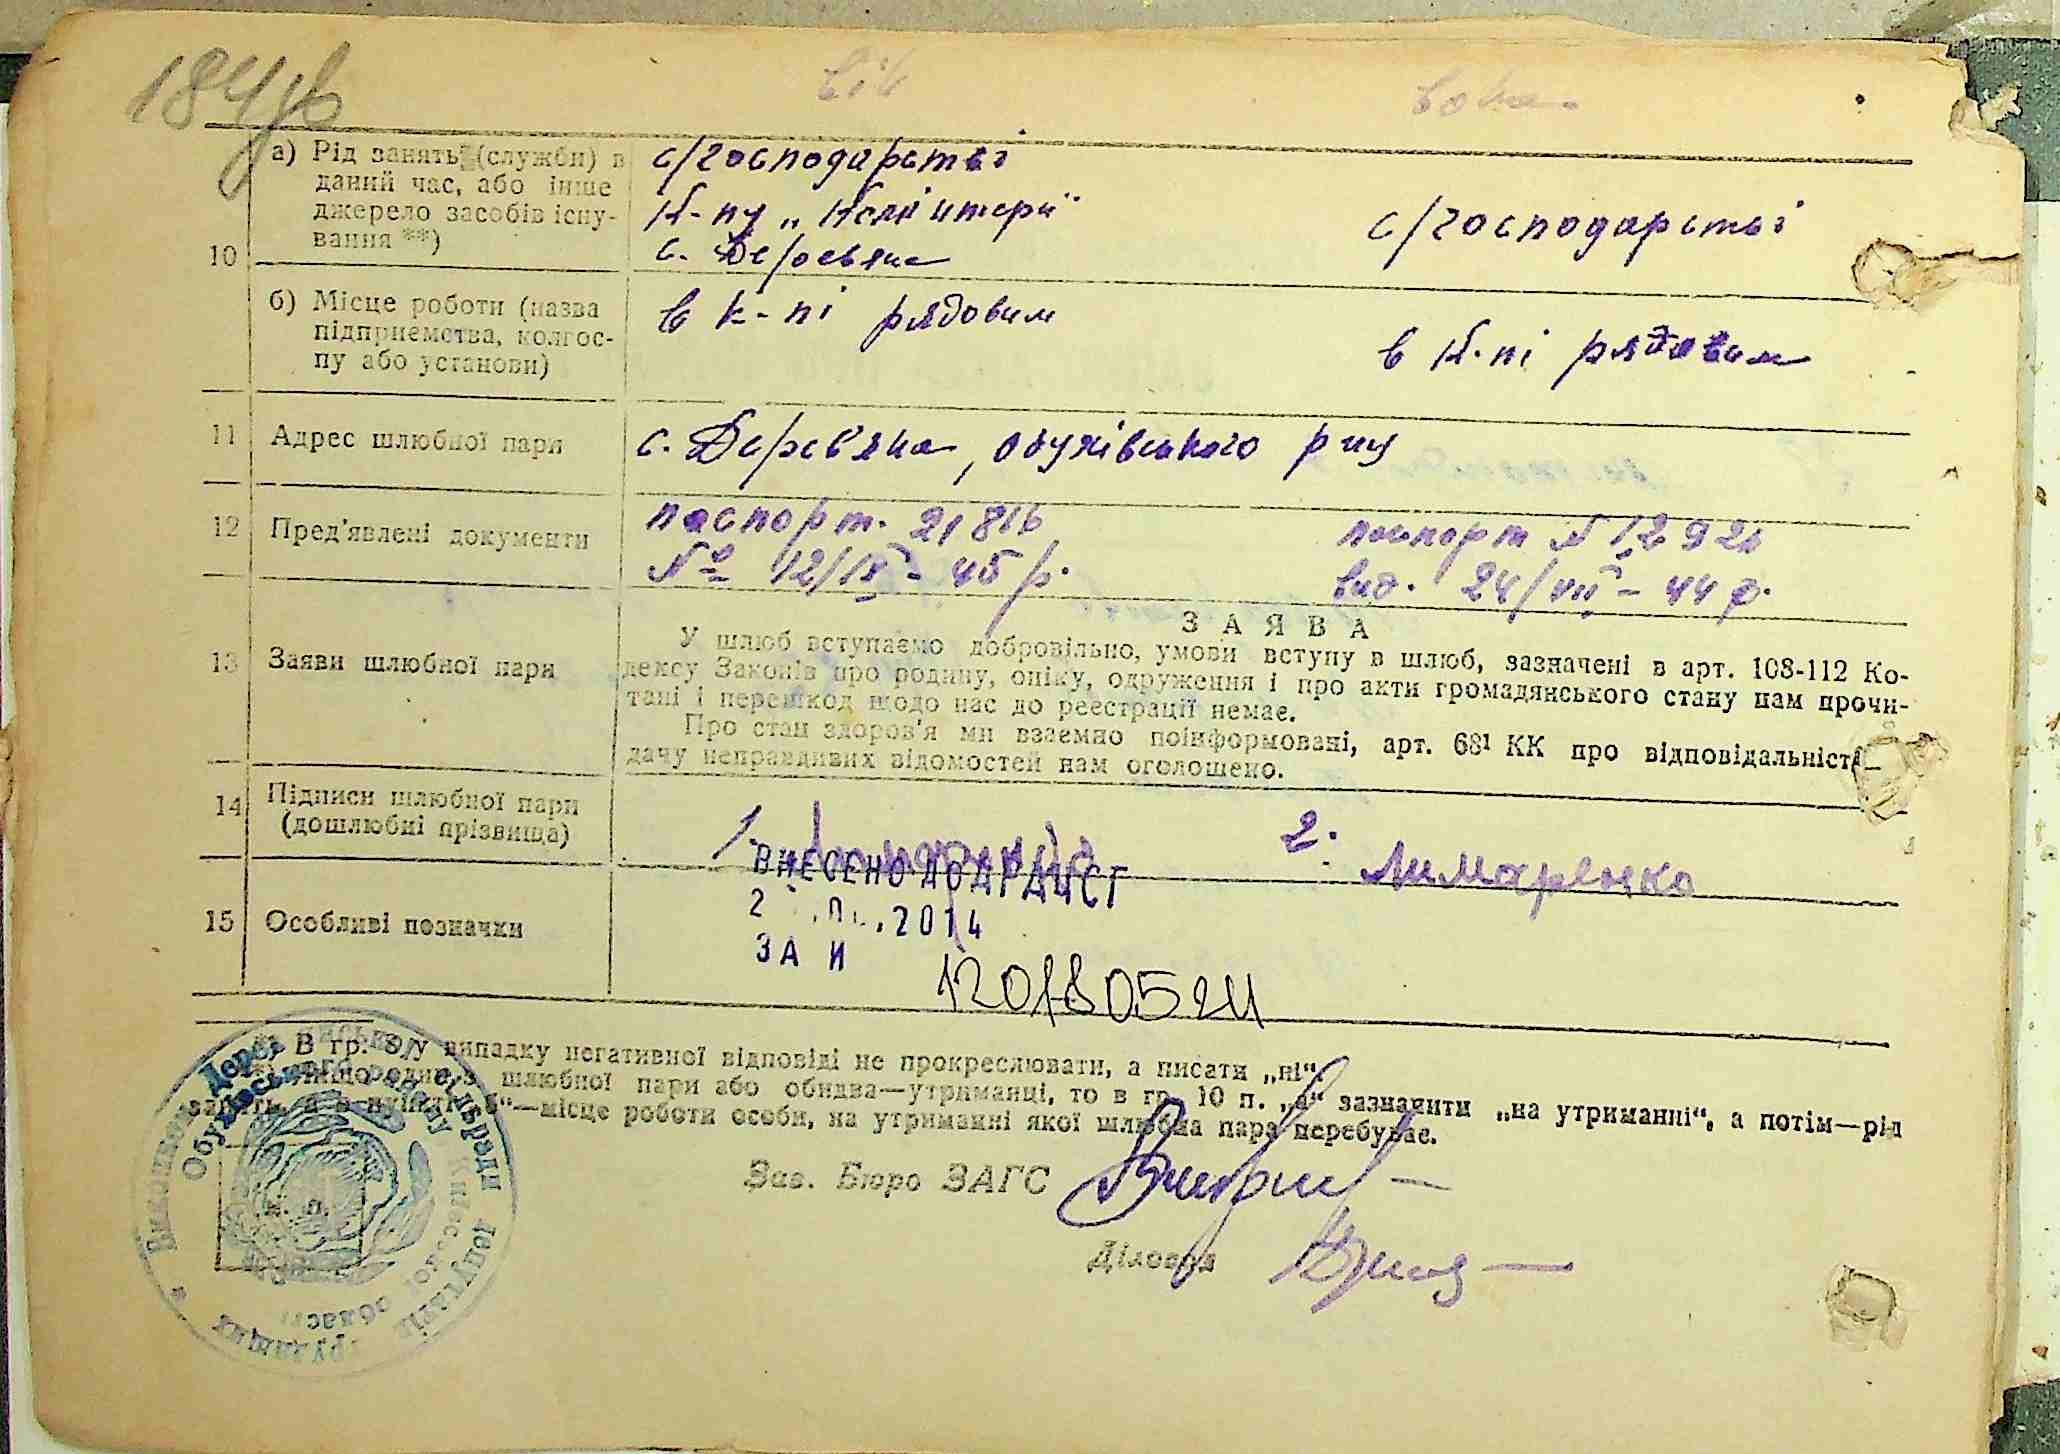 184
він
вона
10
а) Рід занять (служби) в
даний час, або інше
джерело засобів існу-
вання **)
с/господарстві
К-пу „Комінтерн"
с. Дерев'яне
с/господарстві
б) Місце роботи (назва
підприємства, колгос-
пу або установи)
в к-пі рядовим
в к-пі рядовим
11 Адрес шлюбної пари
с. Дерев'яна, Обухівського р-ну
12 Пред'явлені документи
паспорт. 21816
№ 12/IX - 45 р.
паспорт №
вид. 24/VII - 44 р.
13 Заяви шлюбної пари
ЗАЯВА
У шлюб вступаємо добровільно, умови вступу в шлюб, зазначені в арт. 108-112 Ко-
дексу Законів про родину, опіку, одруження і про акти громадянського стану нам прочи-
тані і перешкод щодо нас до реєстрації немає.
Про стан здоров'я ми взаємно поінформовані, арт. 68¹ КК про відповідальність
дачу неправдивих відомостей нам оголошено.
14 Підписи шлюбної пари
(дошлюбні прізвища)
1.
2. Лимаренко
15 Особливі позначки
ВНЕСЕНО ДО ДРАЦСГ
2 2014
ЗА N
В гр. 8 у випадку негативної відповіді не прокреслювати, а писати „ні".
Якщо один з шлюбної пари або обидва—утриманці, то в гр. 10 п. „а" зазначити „на утриманні", а потім—рід
занять, а в пункті „б"—місце роботи особи, на утриманні якої шлюбна пара перебуває.
Зав. Бюро ЗАГС
Діловод
Обухівського району
Київської області
депутатів трудящих